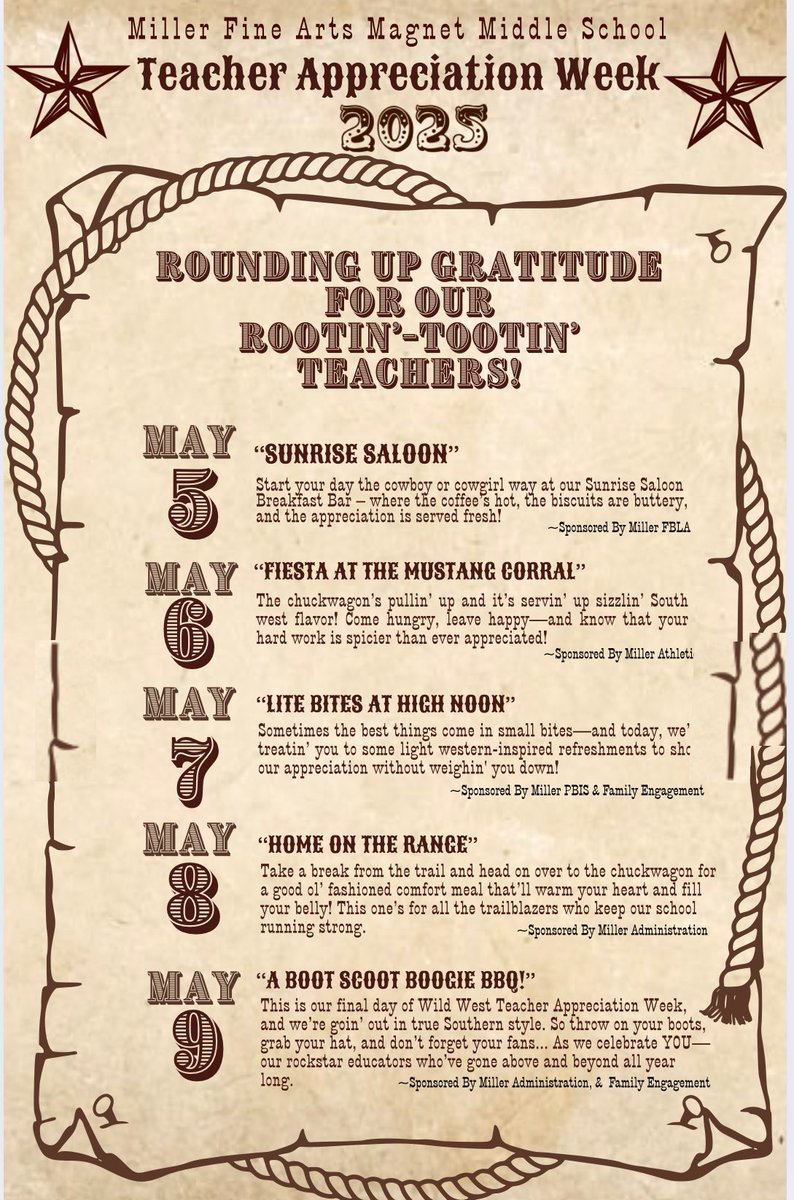 Miller Fine Arts Magnet Middle School
Teacher Appreciation Week
2025
ROUNDING UP GRATITUDE
FOR OUR
ROOTIN'-TOOTIN'
TEACHERS!
MAY
5
"SUNRISE SALOON"
Start your day the cowboy or cowgirl way at our Sunrise Saloon
Breakfast Bar – where the coffee's hot, the biscuits are buttery,
and the appreciation is served fresh!
~Sponsored By Miller FBLA
MAY
6
"FIESTA AT THE MUSTANG CORRAL"
The chuckwagon's pullin' up and it's servin' up sizzlin' South
west flavor! Come hungry, leave happy—and know that your
hard work is spicier than ever appreciated!
~Sponsored By Miller Athleti
MAY
7
"LITE BITES AT HIGH NOON"
Sometimes the best things come in small bites—and today, we'
treatin' you to some light western-inspired refreshments to sho
our appreciation without weighin' you down!
~Sponsored By Miller PBIS & Family Engagement
MAY
8
"HOME ON THE RANGE"
Take a break from the trail and head on over to the chuckwagon for
a good ol' fashioned comfort meal that'll warm your heart and fill
your belly! This one's for all the trailblazers who keep our school
running strong.
~Sponsored By Miller Administration
MAY
9
"A BOOT SCOOT BOOGIE BBQ!"
This is our final day of Wild West Teacher Appreciation Week,
and we're goin' out in true Southern style. So throw on your boots,
grab your hat, and don't forget your fans... As we celebrate YOU—
our rockstar educators who've gone above and beyond all year
long.
~Sponsored By Miller Administration, & Family Engagement